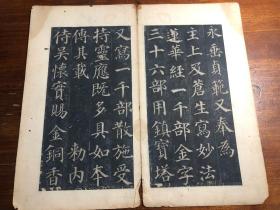 永垂貞範又奉為
主上及蒼生寫妙法
蓮華經一千部金字
三十六部用鎮寶塔
又寫一千部散施受
持靈應既多具如本
傳其載 勑内
侍吳懷實賜金銅香